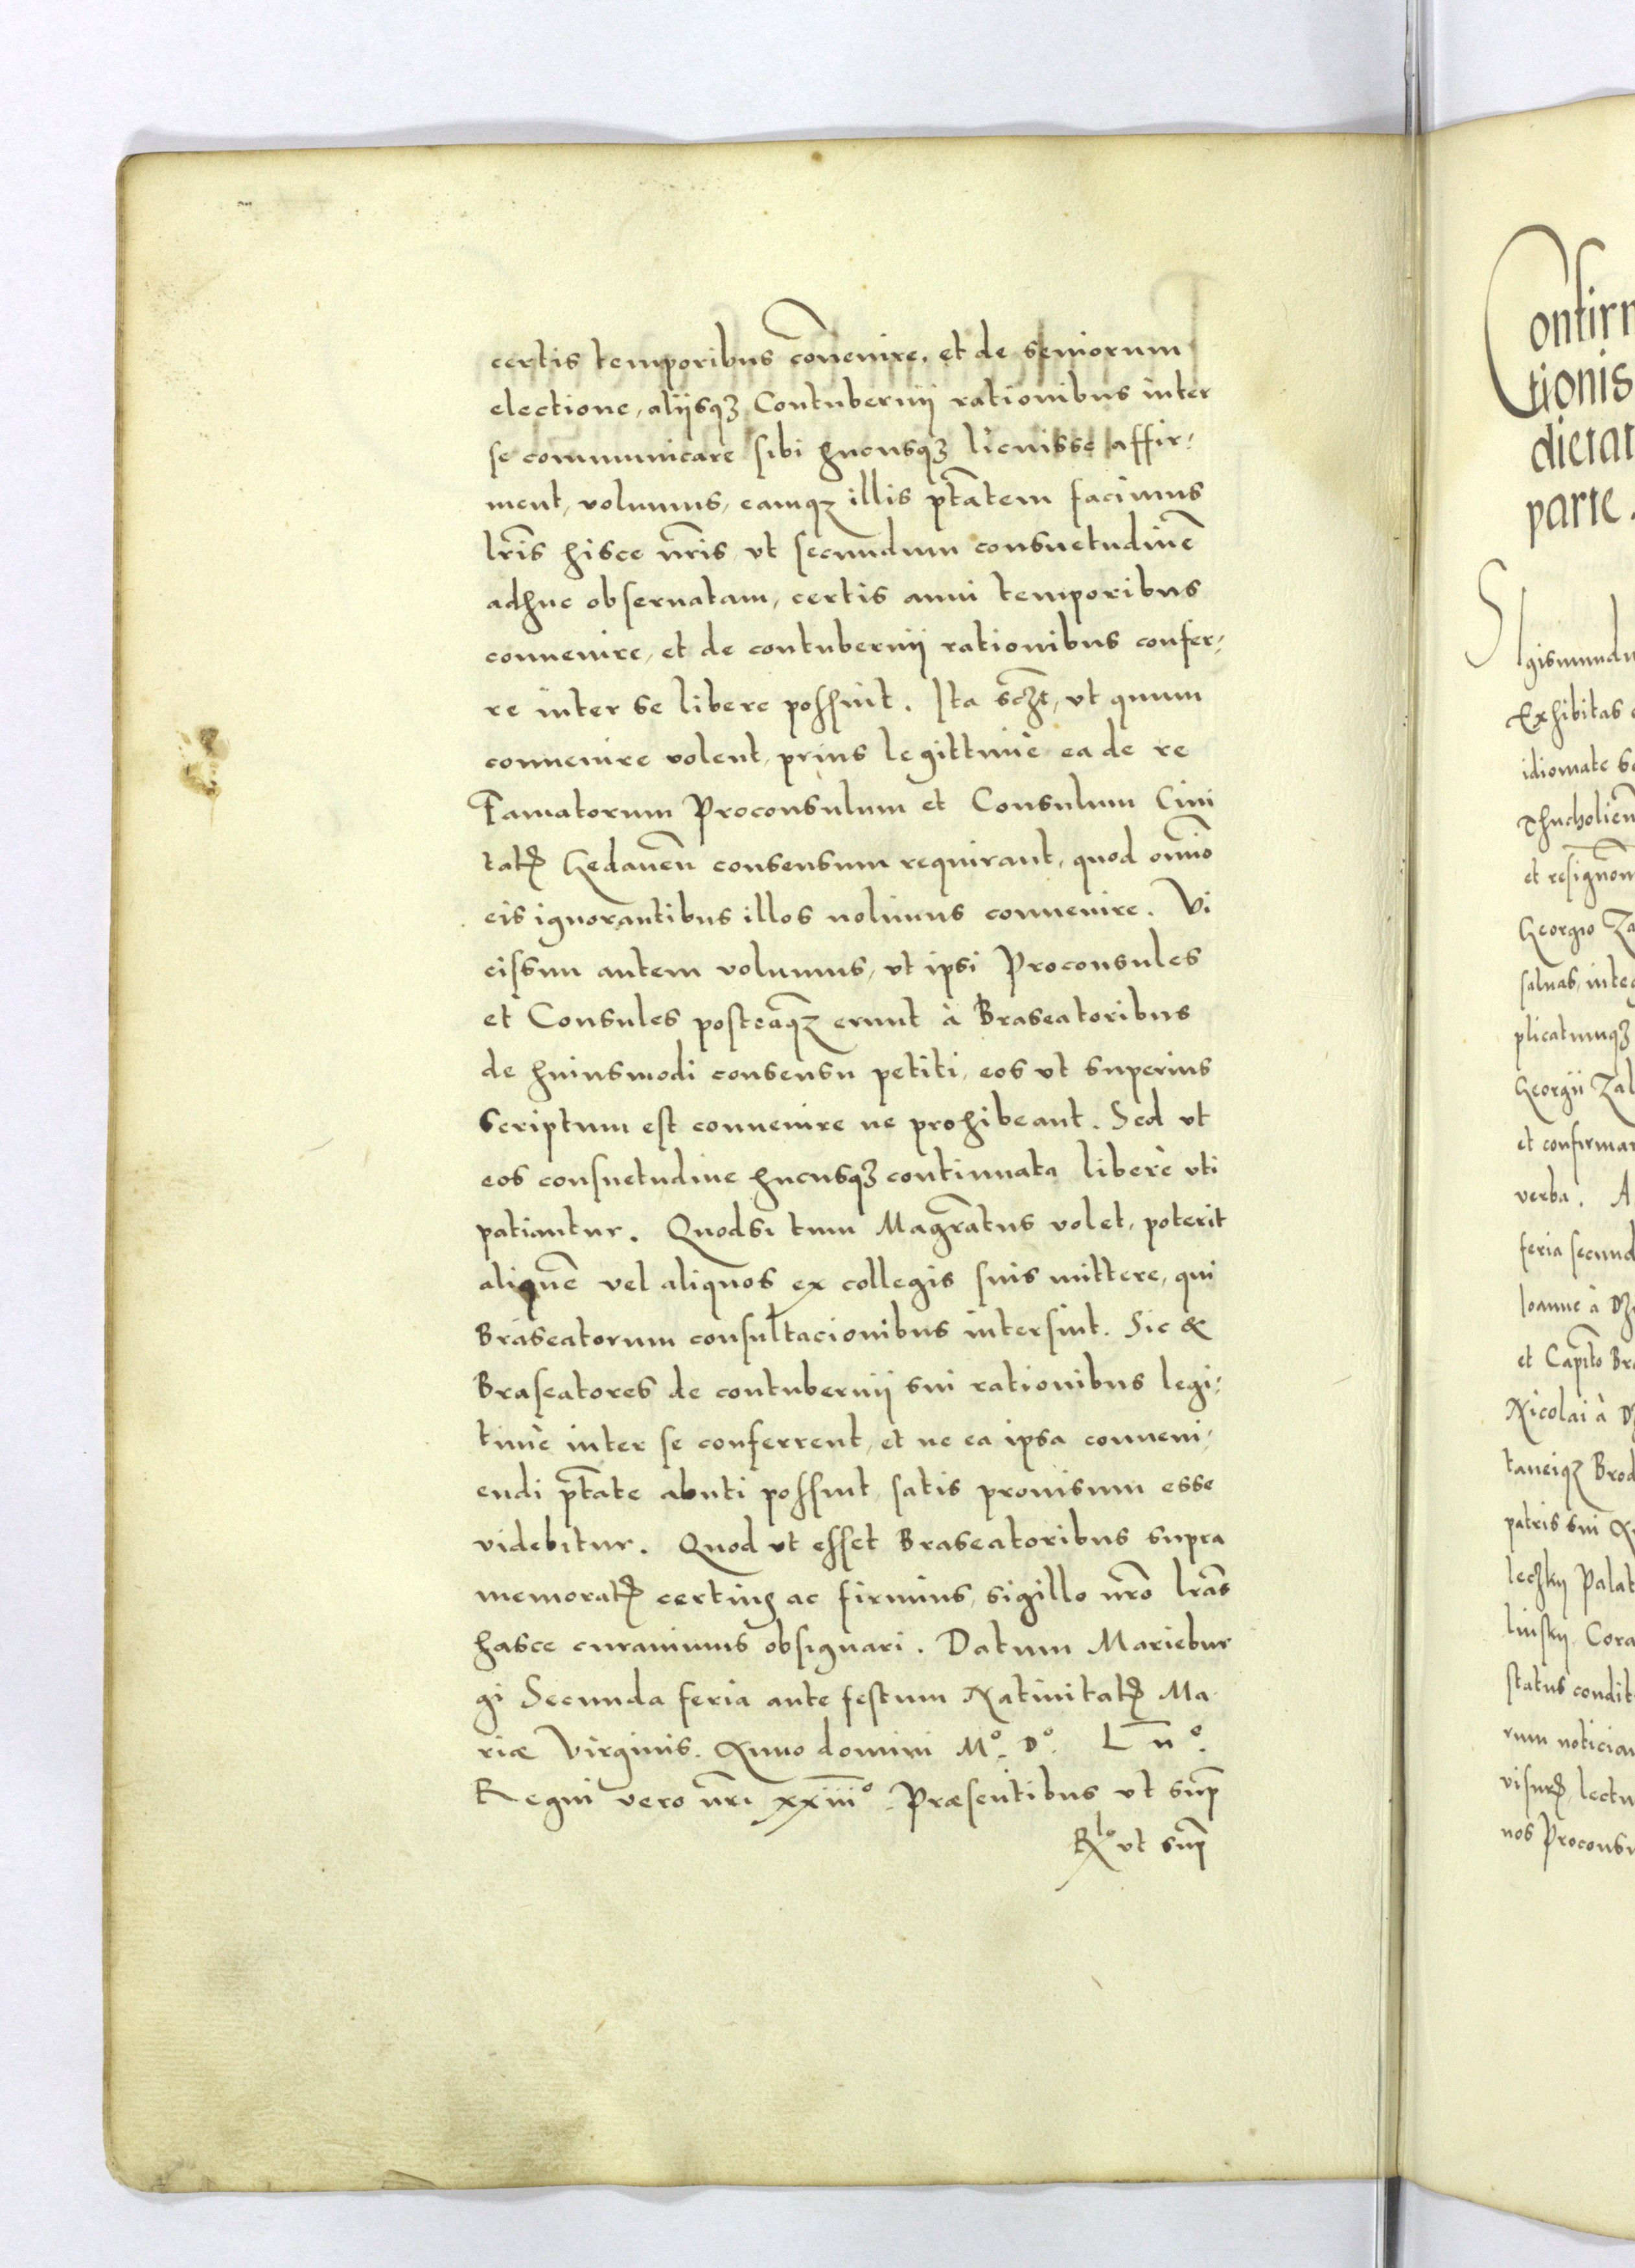 certis temporibus cōuenire, et de seniorum
electione, aliisqꝫ Contubernij rationibus inter
se communicare sibi hucusqꝫ licuisse affir-
ment, volumus, eamqꝫ illis ptātem facimus
lr̄is hisce nr̄is vt secundum consuetudinē
adhuc obseruatam, certis anni temporibus
conuenire, et de contubernij rationibus confer-
re inter se libere possint. Ita scꝫt, vt quum
conuenire volent, prius legittimè ea de re
Famatorum Proconsulum et Consulum Ciui
tatꝭ Gedanen̄ consensum requirant, quod om̄io
eis ignorantibus illos nolimus conuenire. Vi
cissim autem volumus, vt ipsi Proconsules
et Consules posteāqꝫ erunt à Braseatoribus
de huiusmodi consensu petiti, eos vt superius
scriptum est conuenire ne prohibeant. Sed vt
eos consuetudine hucusqꝫ continuata liberè vti
patiantur. Quodsi tum Magrātus volet, poterit
aliquē vel aliquos ex collegis suis mittere, qui
Braseatorum consultacionibus intersint. Sic &
Braseatores de contubernij sui rationibus legi-
timè inter se conferrent, et ne ea ipsa conueni-
endi ptāte abuti possint satis prouisum esse
videbitur. Quod vt esset Braseatoribus supra
memoratꝭ certius ac firmius, sigillo nr̄o lrās
hasce curauimus obsignari. Datum Mariebur
gi Secunda feria ante festum Natiuitatꝭ Ma
riæ Virginis. Anno domini Mº. Dº. L īī º.
Regni vero nr̄i xxiiiº. Præsentibus vt sup̄
Rlº vt sup̄
Confirm
tionis
dictat
parte.
Sigismundu
Exhibitas
idiomate
Thucholien̄
et resignon̄
Georgio Za
saluas, inte
plicatumqꝫ
Georgii Zal
et confirmar
verba. A
feria secund
Ioanne à
et Capit̄o Br
Nicolai à
taneiqꝫ Brod
patris sui
leczky Palat
linsky Cora
status condit
rum noticiam
visurꝭ, lectu
nos Proconsu